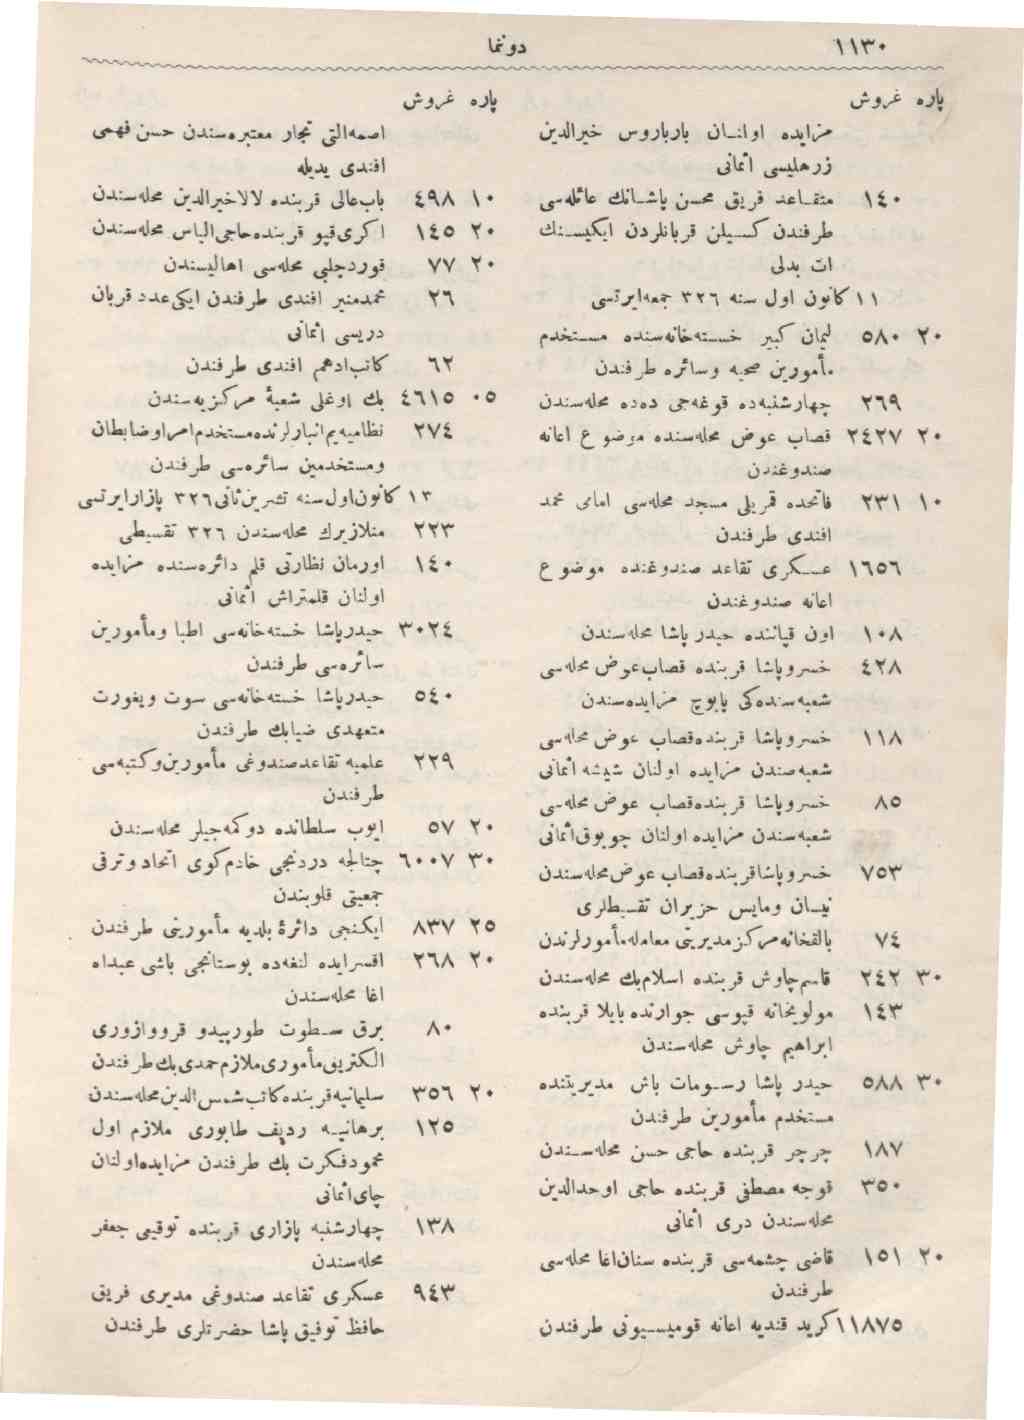 ١١٣٠
دونما
پاره غروش
مزایده اولنان بارباروس خیرالدین
زرهلیسی اثمانی
١٤٠ متقاعد فریق محسن پاشانك عائله‌سی
طرفندن كسیلن قربانلردن ایكیسنك
ات بدلی
١١ كانون اول سنه ٣٢٦ جمعه‌ایرتسی
٢٠ ٥٨٠ لیمان كبیر خسته‌خانه‌سنده مستخدم
مأمورین صحیه وسائره طرفندن
٢٦٩ چهارشنبه‌ده قوغه‌جی دده محله‌سندن
٢٠ ٢٤٢٧ قصاب عوض محله‌سنده موضوع اعانه
صندوغندن
١٠ ٢٣١ فاتحده قمریلی مسجد محله‌سی امامی محمد
افندی طرفندن
١٦٥٦ عسكری تقاعد صندوغنده موضوع
اعانه صندوغندن
١٠٨ اون قپاننده حیدر پاشا محله‌سندن
٤٢٨ خسروپاشا قربنده قصاب‌عوض محله‌سی
شعبه‌سنده‌كی پابوچ مزایده‌سندن
١١٨ خسروپاشا قربنده‌قصاب عوض محله‌سی
شعبه‌صندن مزایده اولنان شیشه اثمانی
٨٥ خسروپاشا قربنده‌قصاب عوض محله‌سی
شعبه‌سندن مزایده اولنان چوبوق‌اثمانی
٧٥٣ خسروپاشاقربنده‌قصاب عوض‌محله‌سندن
نیسان ومایس حزیران تقسیطلری
٧٤ بالقخانه‌مركزمدیریتی معامله‌مأمورلرندن
٣٠ ٢٤٢ قاسم‌چاوش قربنده اسلام‌بك محله‌سندن
١٤٣ مولویخانه قپوسی جوارنده‌بایلا قربنده
ابراهیم چاوش محله‌سندن
٣٠ ٥٨٨ حیدر پاشا رسومات باش مدیریتنده
مستخدم مأمورین طرفندن
١٨٧ چرچر قربنده حاجی حسن محله‌سندن
٣٥٠ قوجه مصطفی قربنده حاجی اوحدالدین
محله‌سندن دری اثمانی
٢٠ ١٥١ قاضی چشمه‌سی قربنده سنان‌اغا محله‌سی
طرفندن
١١٨٧٥ كرید قندیه اعانه قومیسیونی طرفندن
پاره غروش
اصمه‌التی تجار معتبره‌سندن حسن فهمی
افندی یدیله
١٠ ٤٩٨ باب‌عالی قربنده لالاخیرالدین محله‌سندن
٢٠ ١٤٥ اكری‌قپو قربنده‌حاجی‌الیاس محله‌سندن
٢٠ ٧٧ قوردچلبی محله‌سی اهالیسندن
٢٦ محمدمنیر افندی طرفندن ایكی‌عدد قربان
دریسی اثمانی
٦٢ كاتب‌ادهم افندی طرفندن
٠٥ ٤٦١٥ بك اوغلی شعبۀ مركزیه‌سندن
٢٧٤ نظامیه‌یم‌انبارلرنده‌مستخدم‌امراوضابطان
ومستخدمین سائره‌سی طرفندن
١٣ كانون‌اول‌سنه تشرین‌ثانی٣٢٦ پازارایرتسی
٢٢٣ منلازیرك محله‌سندن ٣٢٦ تقسیطی
١٤٠ اورمان نظارتی قلم دائره‌سنده مزایده
اولنان قلمتراش اثمانی
٣٠٢٤ حیدرپاشا خسته‌خانه‌سی اطبا ومأمورین
سائره‌سی طرفندن
٥٤٠ حیدرپاشا خسته‌خانه‌سی سوت ویغورت
متعهدی ضیابك طرفندن
٢٢٩ علمیه تقاعدصندوغی مأمورین‌وكتبه‌سی
طرفندن
٢٠ ٥٧ ایوب سلطانده دوكمه‌جیلر محله‌سندن
٣٠ ٦٠٠٧ چتالجه دردنجی خادم‌كوی اتحاد وترقی
جمعیتی قلوبندن
٢٥ ٨٣٧ ایكنجی دائرۀ بلدیه مأمورینی طرفندن
٢٠ ٢٦٨ اقسرایده لنغه‌ده بوستانجی باشی عبداه
اغا محله‌سندن
٨٠ برق سطوت طورپیدو قرووازوری
الكتریق‌مأموری‌ملازم‌حمدی‌بك‌طرفندن
٢٠ ٣٥٦ سلیمانیه‌قربنده‌كاتب‌شمس‌الدین‌محله‌سندن
١٢٥ برهانیه ردیف طابوری ملازم اول
محمودفكرت بك طرفندن مزایده‌اولنان
چای‌اثمانی
١٣٨ چهارشنبه پازاری قربنده توقیعی جعفر
محله‌سندن
٩٤٣ عسكری تقاعد صندوغی مدیری فریق
حافظ توفیق پاشا حضرتلری طرفندن